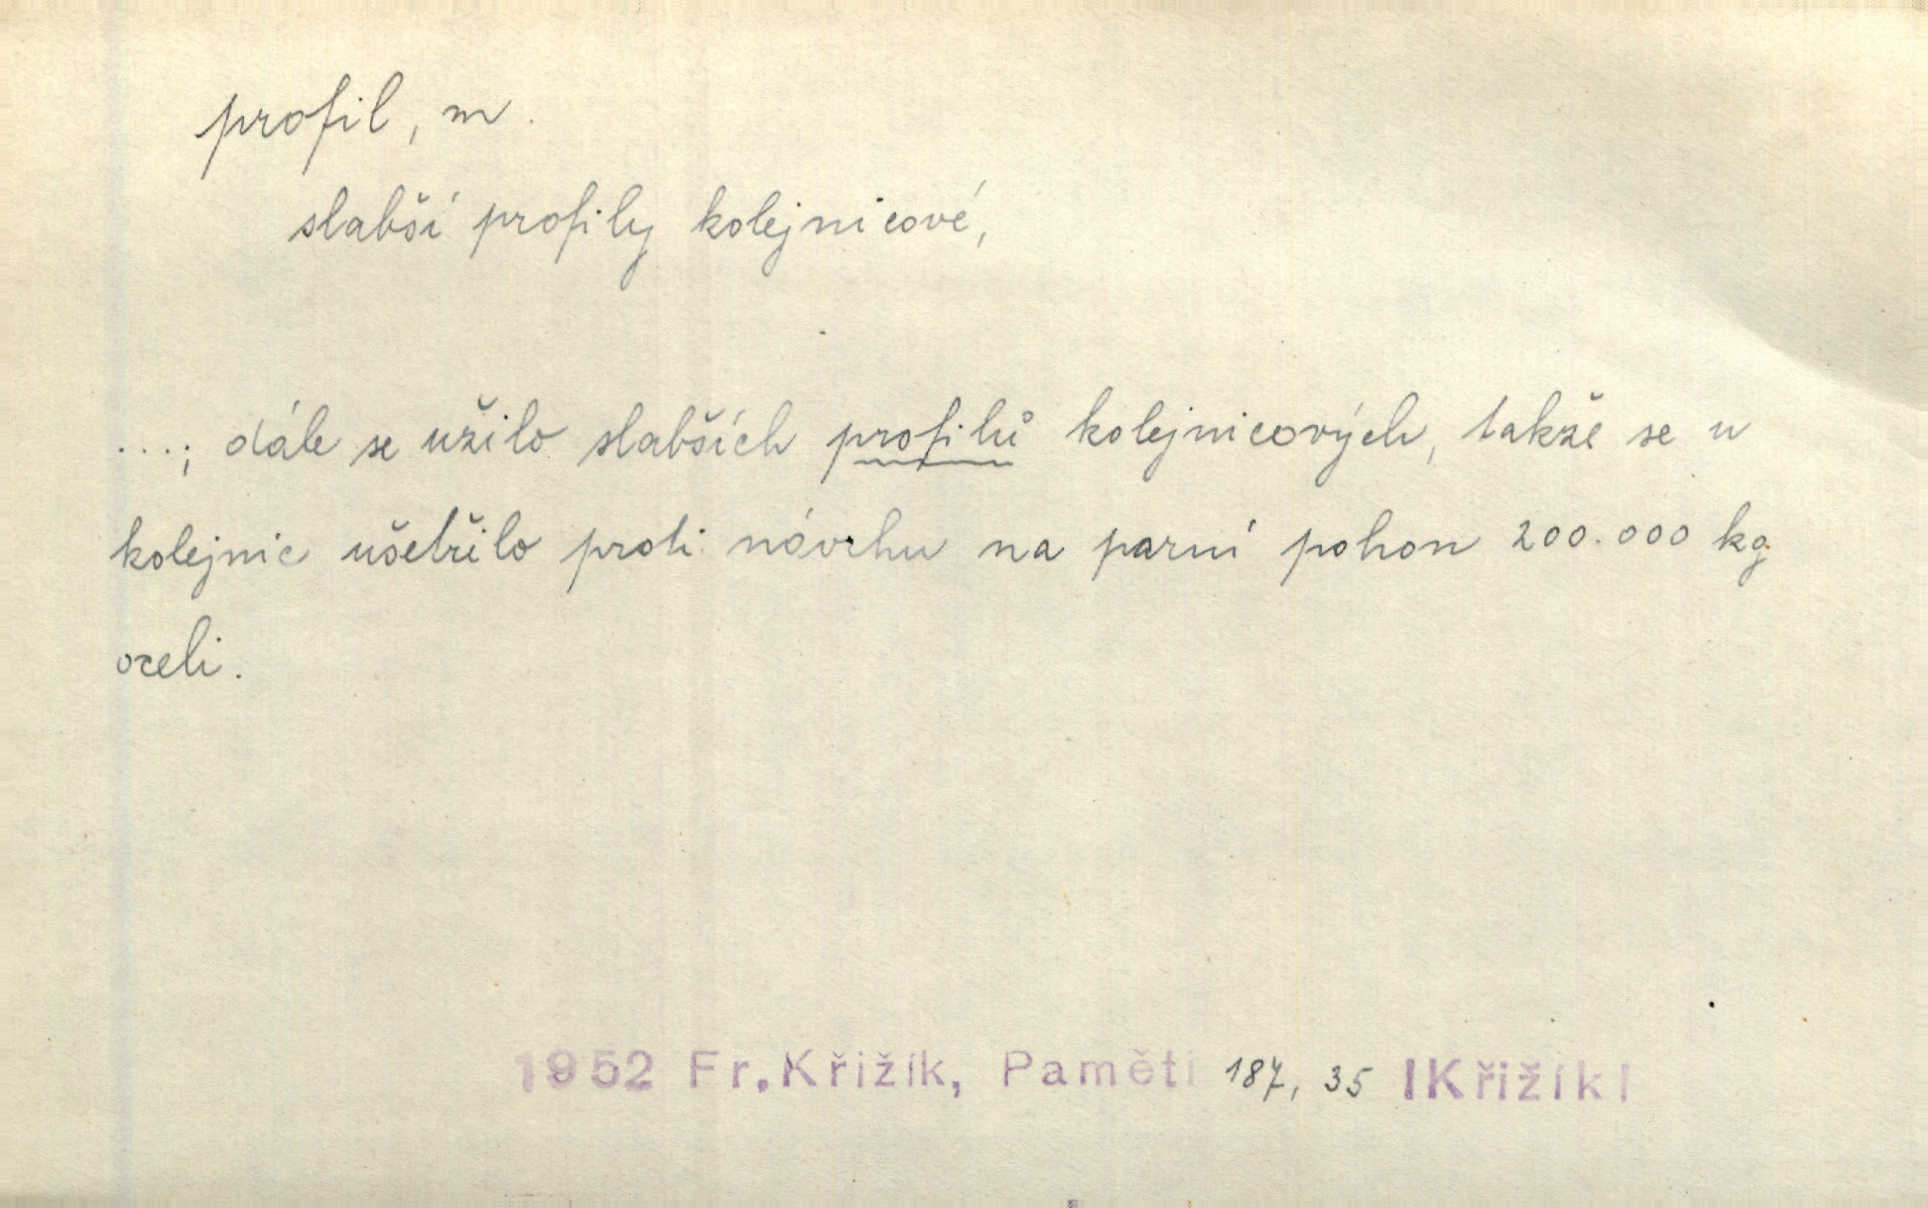 profil, m.
slabší profily kolejnicové,
...; dále se užilo slabších profilů kolejnicových, takže se u
kolejnic ušetřilo proti návrhu na parní pohon 200.000 kg
oceli.
1952 Fr.Křižík, Paměti 187, 35 |Křižík|